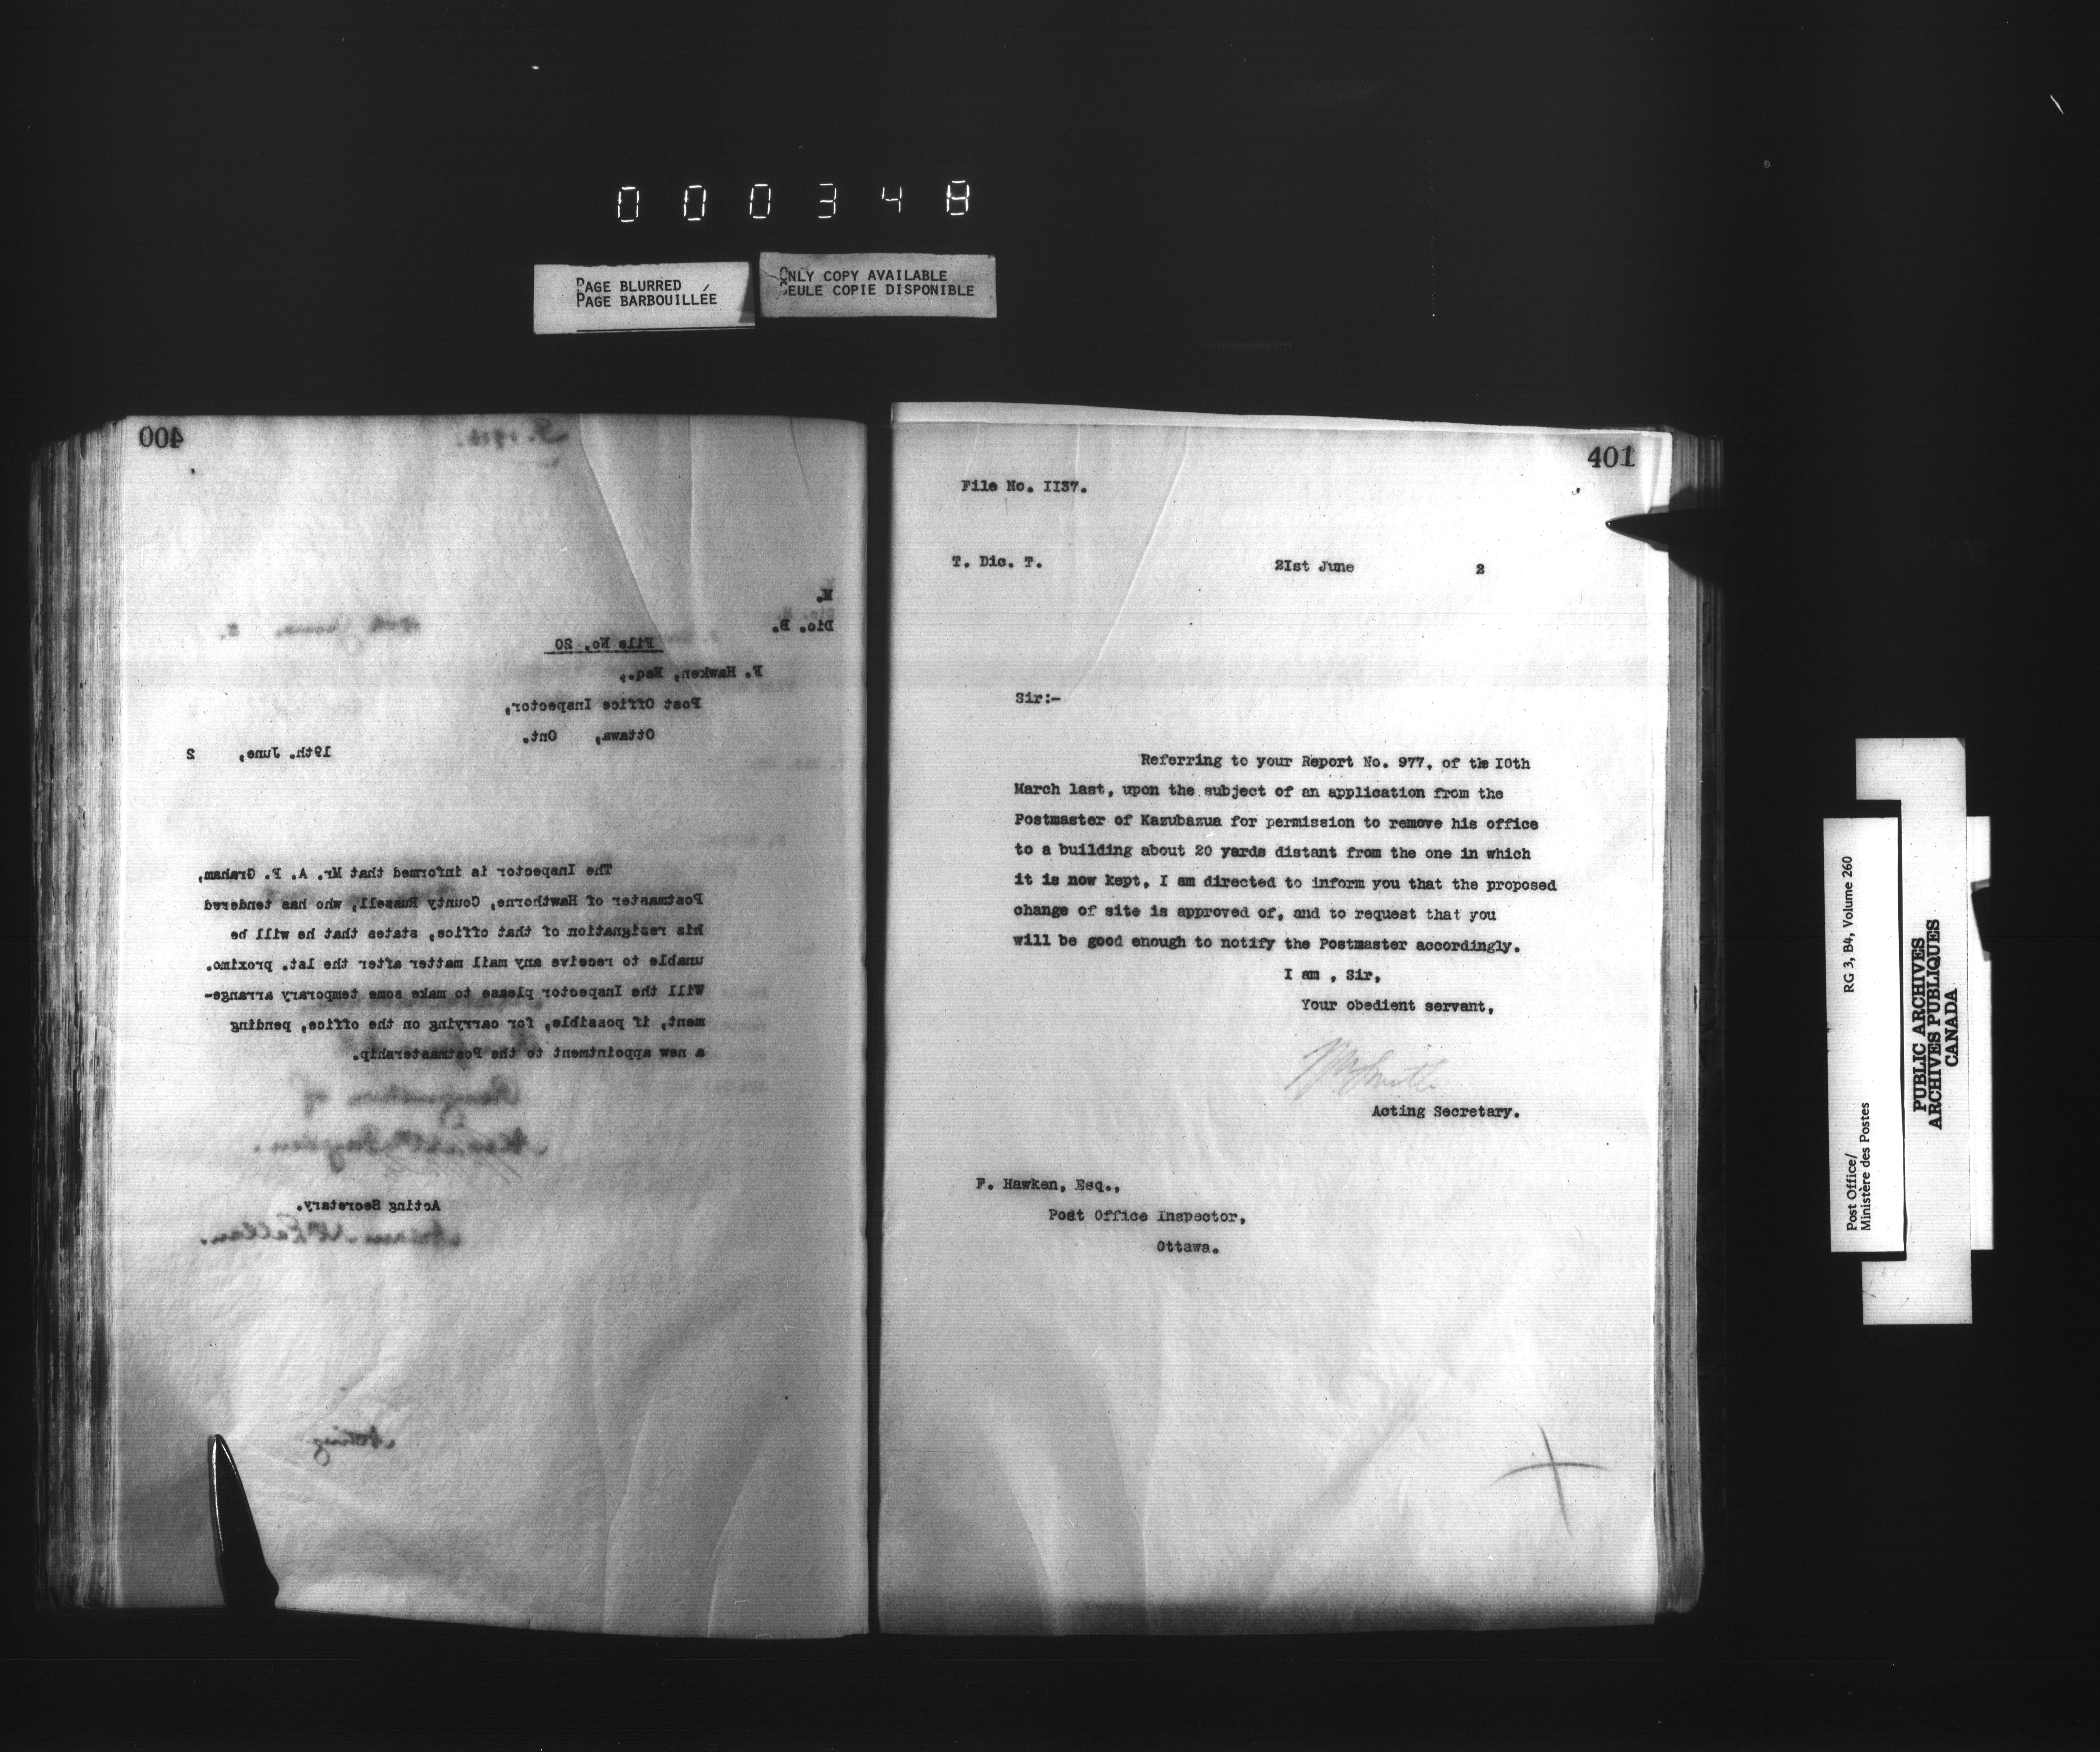 000348
PAGE BLURRED
PAGE BARBOUILLÉE
ONLY COPY AVAILABLE
SEULE COPIE DISPONIBLE
400
M.
Dic. B.
File No. 20
F. Hawken, Esq.,
Post Office Inspector,
Ottawa, Ont.
19th. June, 2
The Inspector is informed that Mr. A. P. Graham,
Postmaster of Hawthorne, County Russell, who has tendered
his resignation of that office, states that he will be
unable to receive any mail matter after the 1st. proximo.
Will the Inspector please to make some temporary arrange-
ment, if possible, for carrying on the office, pending
a new appointment to the Postmastership.
Resignation of
Acting Secretary.
Acting
401
File No. II37.
T. Dic. T. 2Ist June 2
Sir:-
Referring to your Report No. 977, of the I0th
March last, upon the subject of an application from the
Postmaster of Kazubazua for permission to remove his office
to a building about 20 yards distant from the one in which
it is now kept, I am directed to inform you that the proposed
change of site is approved of, and to request that you
will be good enough to notify the Postmaster accordingly.
I am , Sir,
Your obedient servant,
Smith
Acting Secretary.
F. Hawken, Esq.,
Post Office Inspector,
Ottawa.
Post Office/
Ministère des Postes
RG 3, B4, Volume 260
PUBLIC ARCHIVES
ARCHIVES PUBLIQUES
CANADA